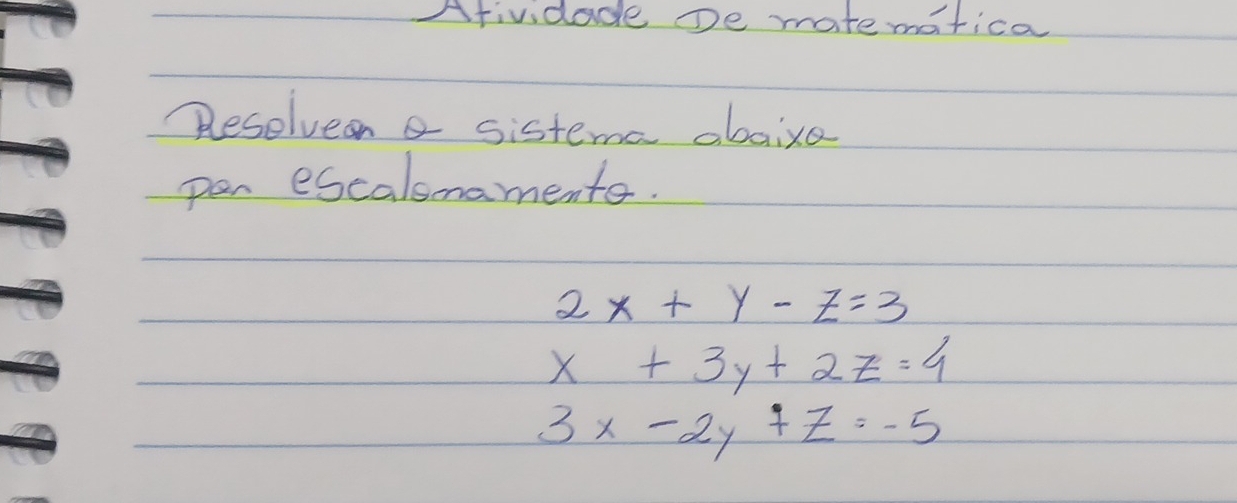 Atividade De matemática
Resolver o sistema abaixo
por escalonamento.
2x + y - z = 3
x + 3y + 2z = 4
3x - 2y + z = -5